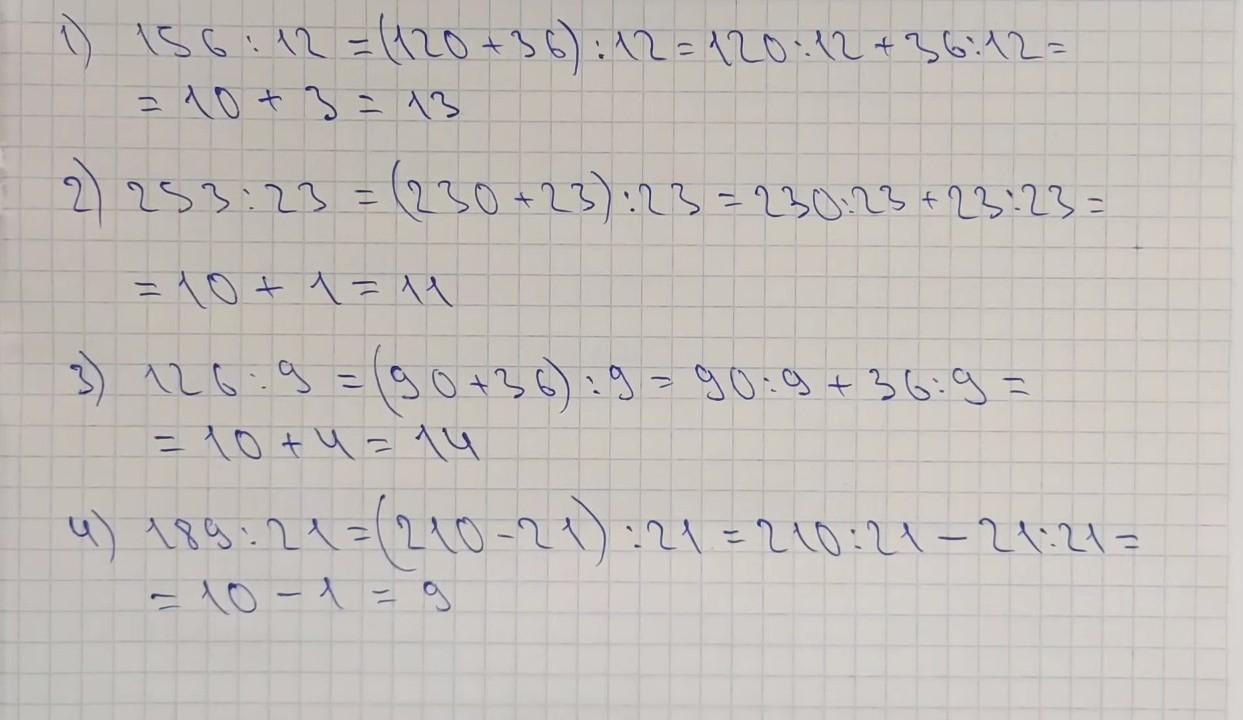 1) 156 : 12 = (120 + 36) : 12 = 120 : 12 + 36 : 12 =
= 10 + 3 = 13
2) 253 : 23 = (230 + 23) : 23 = 230 : 23 + 23 : 23 =
= 10 + 1 = 11
3) 126 : 9 = (90 + 36) : 9 = 90 : 9 + 36 : 9 =
= 10 + 4 = 14
4) 189 : 21 = (210 - 21) : 21 = 210 : 21 - 21 : 21 =
= 10 - 1 = 9